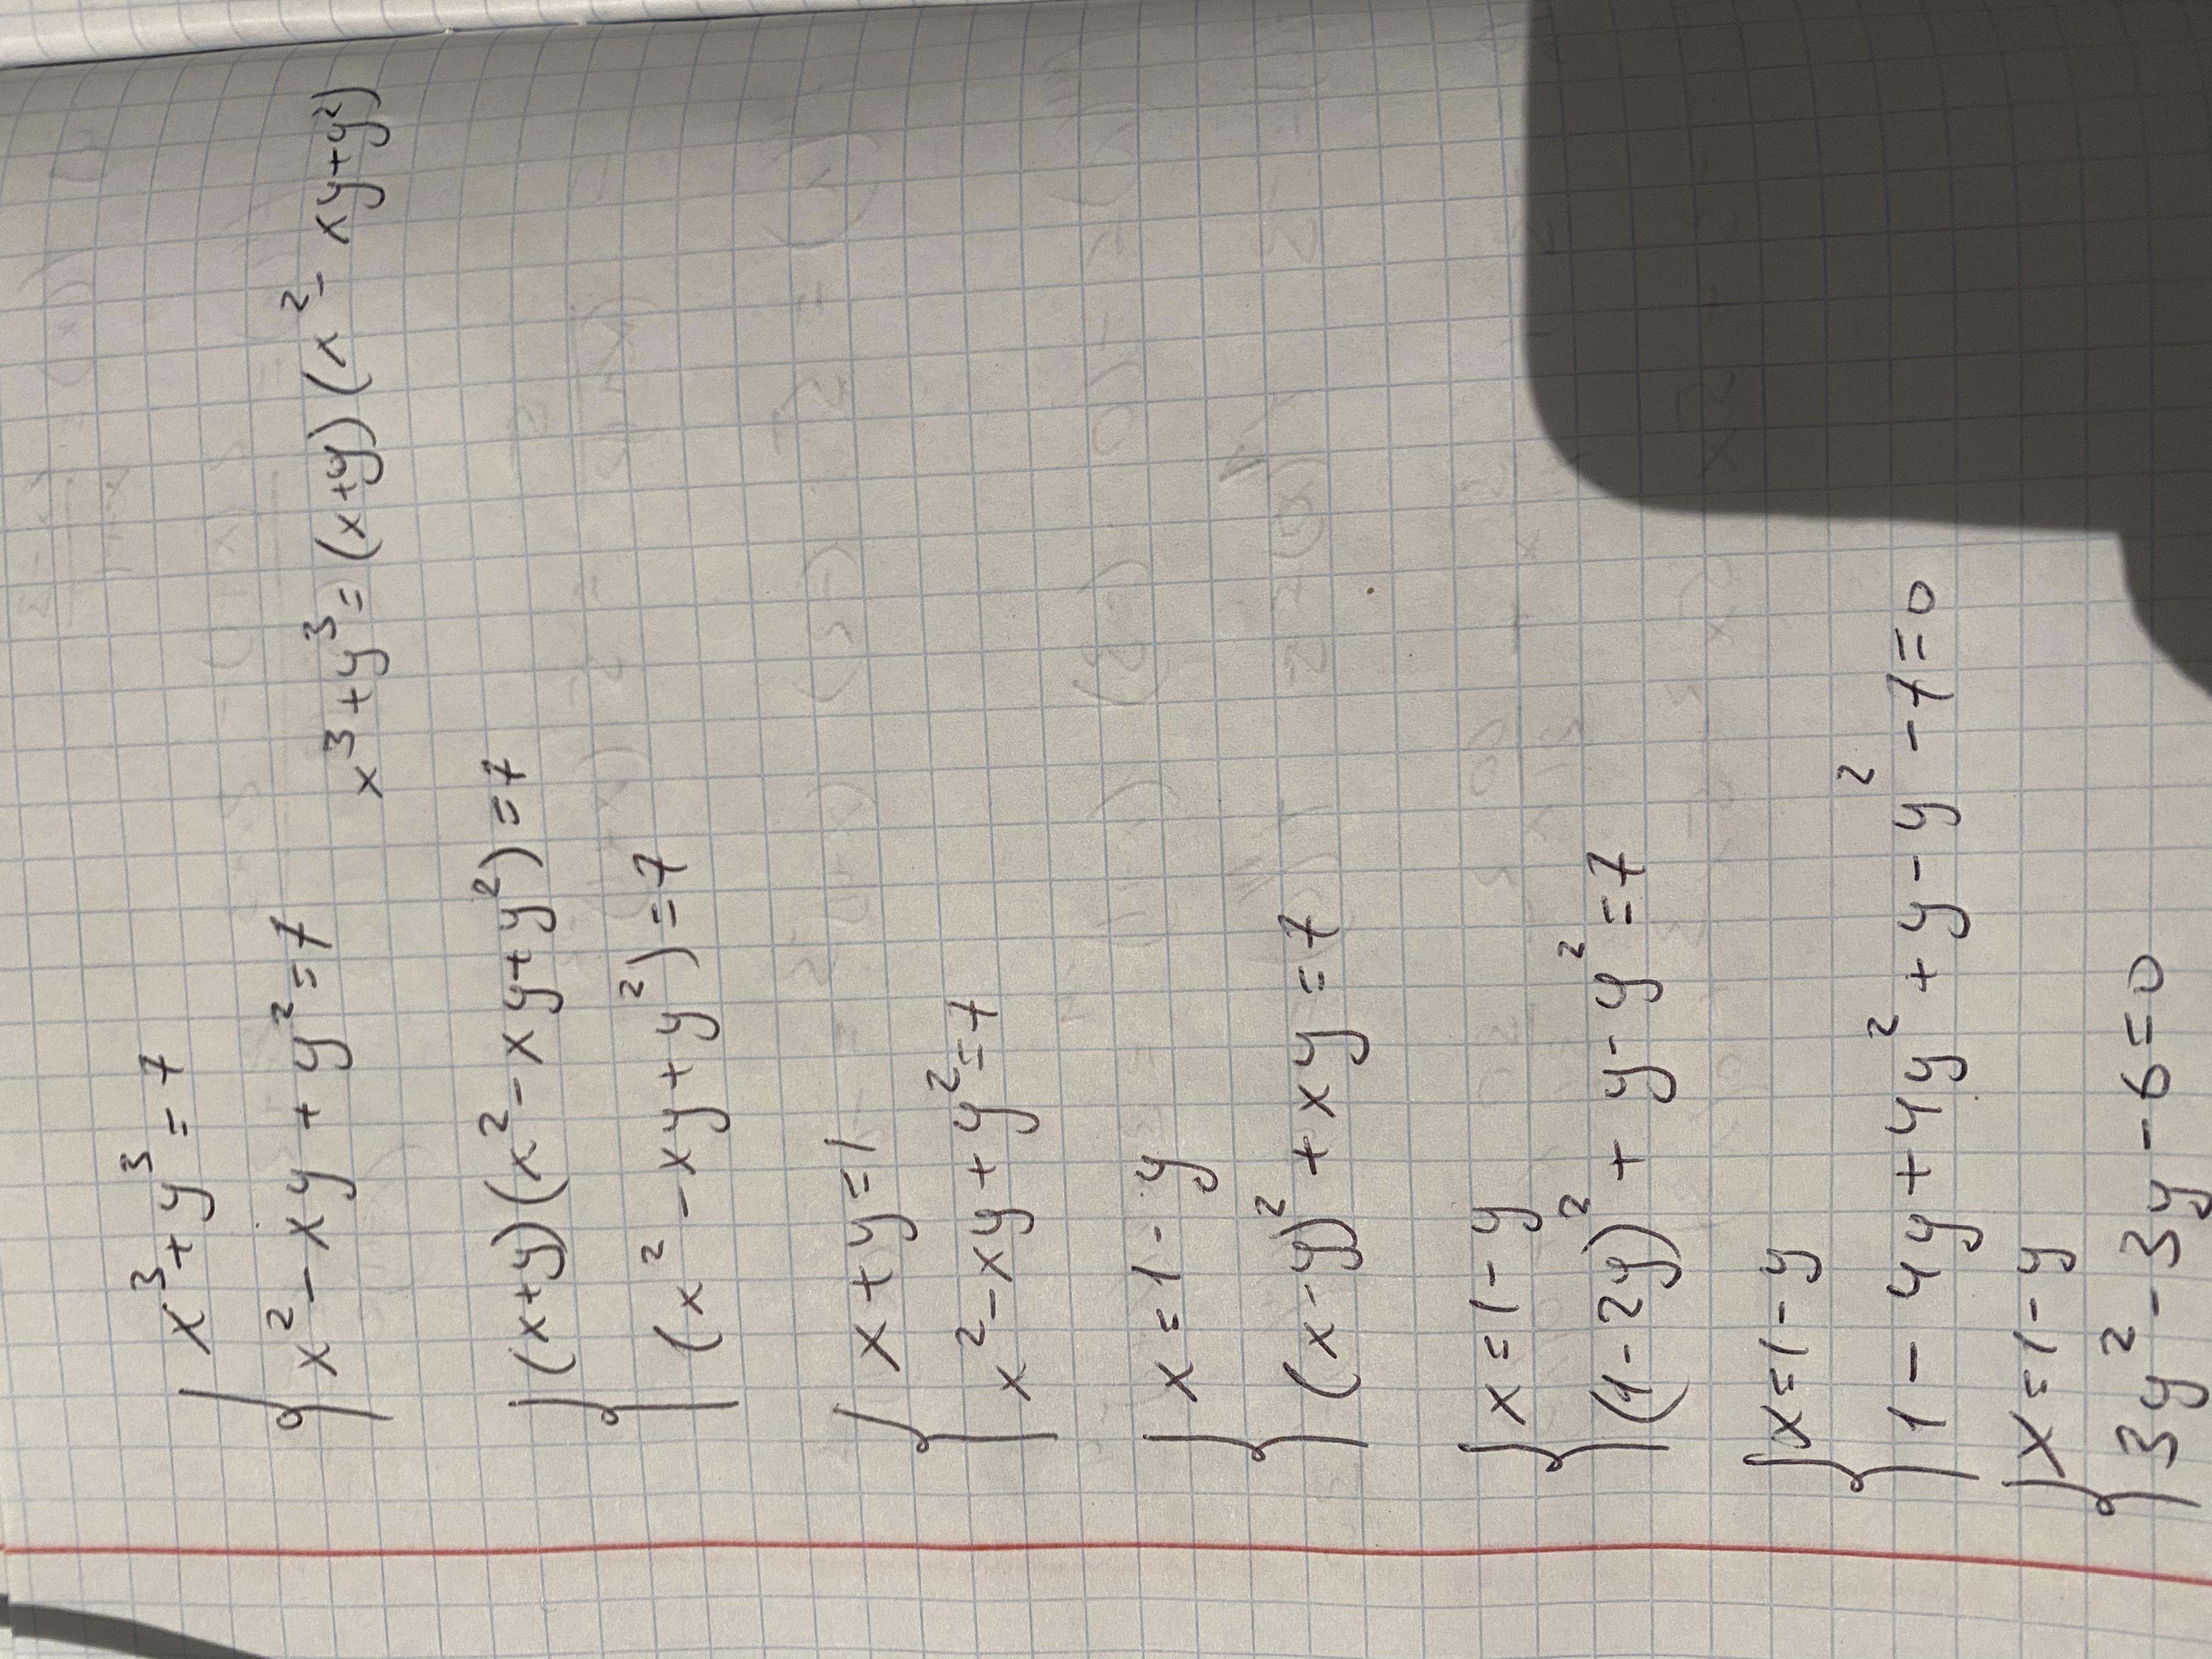 x³+y³=7
x²-xy+y²=7
x³+y³=(x+y)(x²-xy+y²)
(x+y)(x²-xy+y²)=7
(x²-xy+y²)=7
x+y=1
x²-xy+y²=7
x=1-y
(x-y)²+xy=7
x=1-y
(1-2y)²+y-y²=7
x=1-y
1-4y+4y²+y-y²-7=0
x=1-y
3y²-3y-6=0